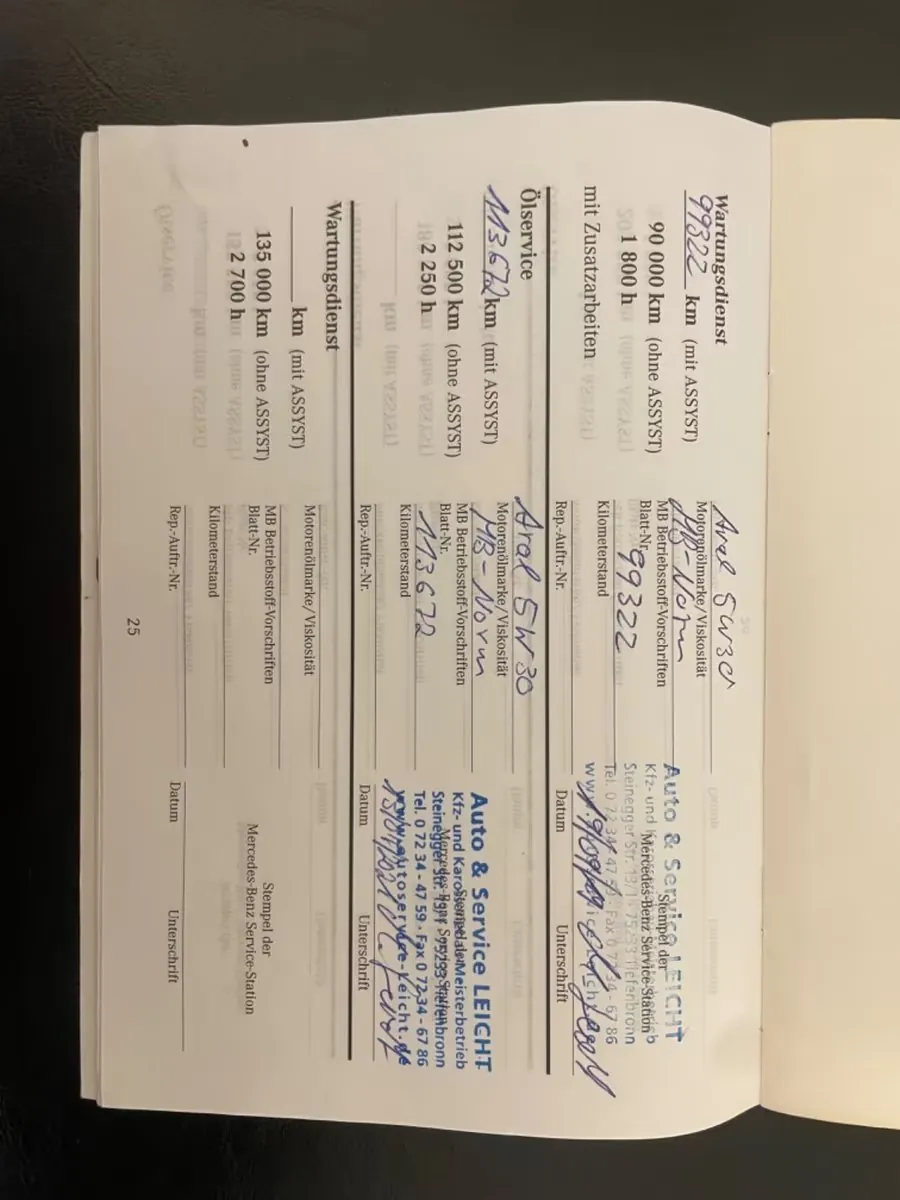 Wartungsdienst
99322 km (mit ASSYST)
90 000 km (ohne ASSYST)
1 800 h
mit Zusatzarbeiten
Aral 5W30
Motorenölmarke/Viskosität
MB-Norm
MB Betriebsstoff-Vorschriften
Blatt-Nr.
99322
Kilometerstand
Rep.-Auftr.-Nr.
Auto & Service LEICHT
Kfz- und
Steinegger Str. 13/1
Tel. 0 72 34 - 47 59 · Fax 0 72 34 - 67 86
Stempel der
Mercedes-Benz Service-Station
Datum
Unterschrift
Ölservice
113672 km (mit ASSYST)
112 500 km (ohne ASSYST)
2 250 h
Aral 5W30
Motorenölmarke/Viskosität
MB-Norm
MB Betriebsstoff-Vorschriften
Blatt-Nr.
113672
Kilometerstand
Rep.-Auftr.-Nr.
Auto & Service LEICHT
Kfz- und Karosserie-Meisterbetrieb
Steinegger Str. 13/1 · 75233 Tiefenbronn
Tel. 0 72 34 - 47 59 · Fax 0 72 34 - 67 86
www.autoservice-leicht.de
Stempel der
Mercedes-Benz Service-Station
Datum
Unterschrift
Wartungsdienst
km (mit ASSYST)
135 000 km (ohne ASSYST)
2 700 h
Motorenölmarke/Viskosität
MB Betriebsstoff-Vorschriften
Blatt-Nr.
Kilometerstand
Rep.-Auftr.-Nr.
Stempel der
Mercedes-Benz Service-Station
Datum
Unterschrift
25